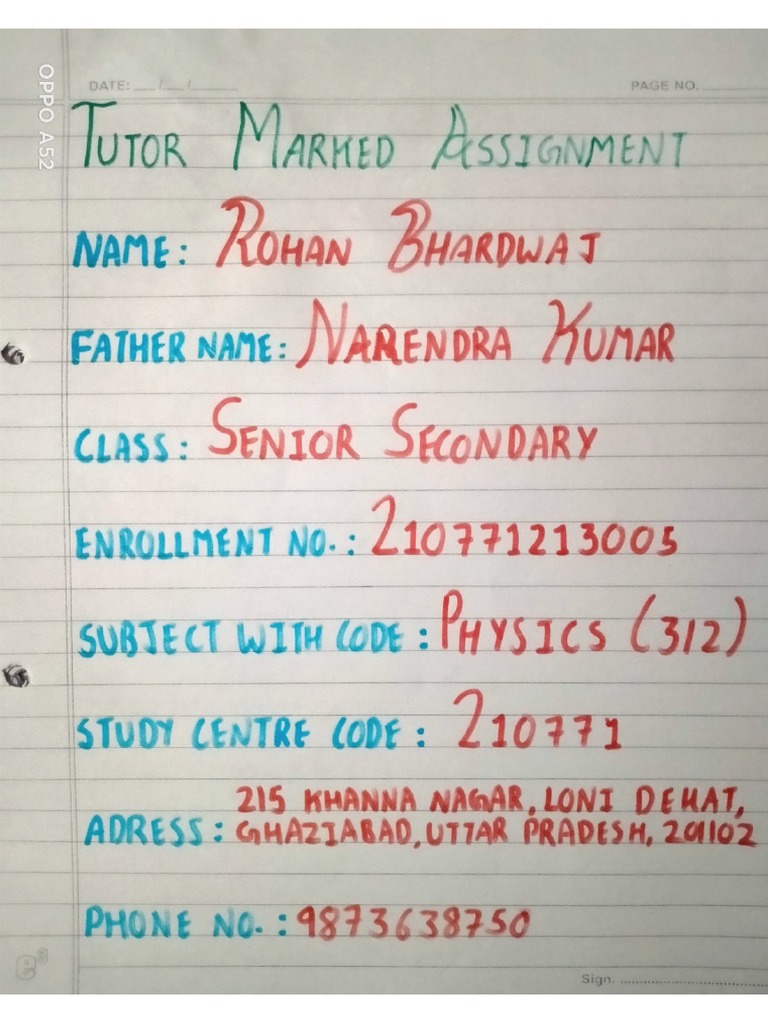 DATE: __/__/____
PAGE NO.
OPPO A52
TUTOR MARKED ASSIGNMENT
NAME: ROHAN BHARDWAJ
FATHER NAME: NARENDRA KUMAR
CLASS: SENIOR SECONDARY
ENROLLMENT NO.: 210771213005
SUBJECT WITH CODE: PHYSICS (312)
STUDY CENTRE CODE: 210771
ADRESS: 215 KHANNA NAGAR, LONI DEHAT,
GHAZIABAD, UTTAR PRADESH, 201102
PHONE NO.: 9873638750
Sign. ........................